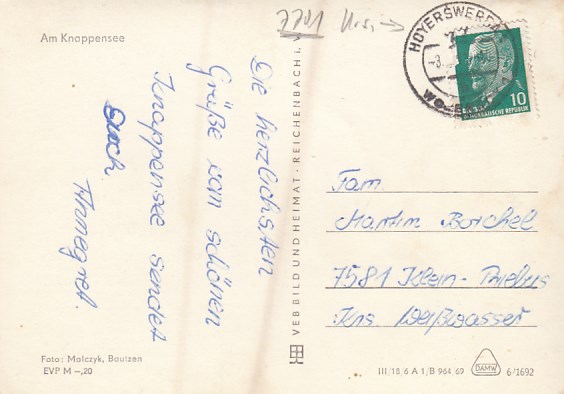 Am Knappensee
7701 Krs.
HOYERSWERDA
10
DEMOKRATISCHE REPUBLIK
Die herzlichsten
Grüße vom schönen
Knappensee sendet
Euch
Annegret.
VEB BILD UND HEIMAT · REICHENBACH i. V.
Fam.
Martin Borchel
7581 Klein-Priebus
Krs. Weißwasser
Foto: Malczyk, Bautzen
EVP M –,20
III/18,6 A 1/B 964 69
DAMW
6/1692